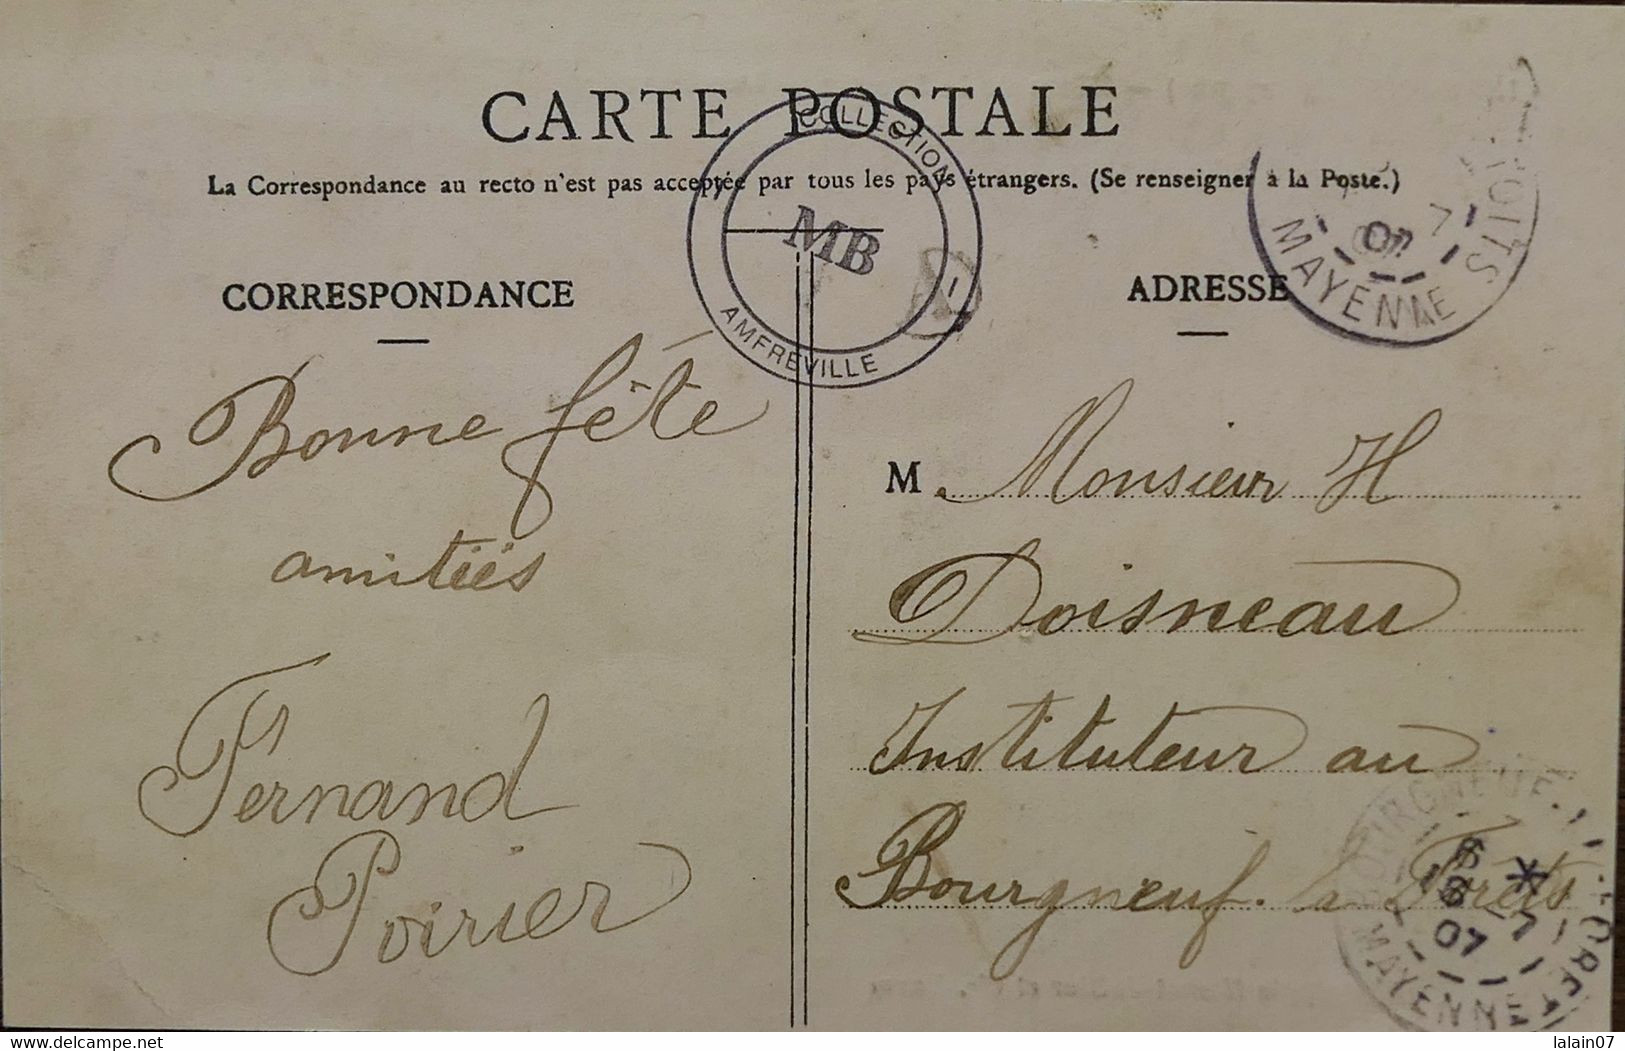 CARTE POSTALE
La Correspondance au recto n'est pas acceptée par tous les pays étrangers. (Se renseigner à la Poste.)
COLLECTION
MB
AMFREVILLE
CORRESPONDANCE
Bonne fête
amitiés
Fernand
Poirier
ADRESSE
7
07
MAYENNE
M. Monsieur H
Doisneau
Instituteur au
Bourgneuf. la Forêts
BOURGNEUF
6 *
16 -7
07
MAYENNE
www.delcampe.net
lalain07